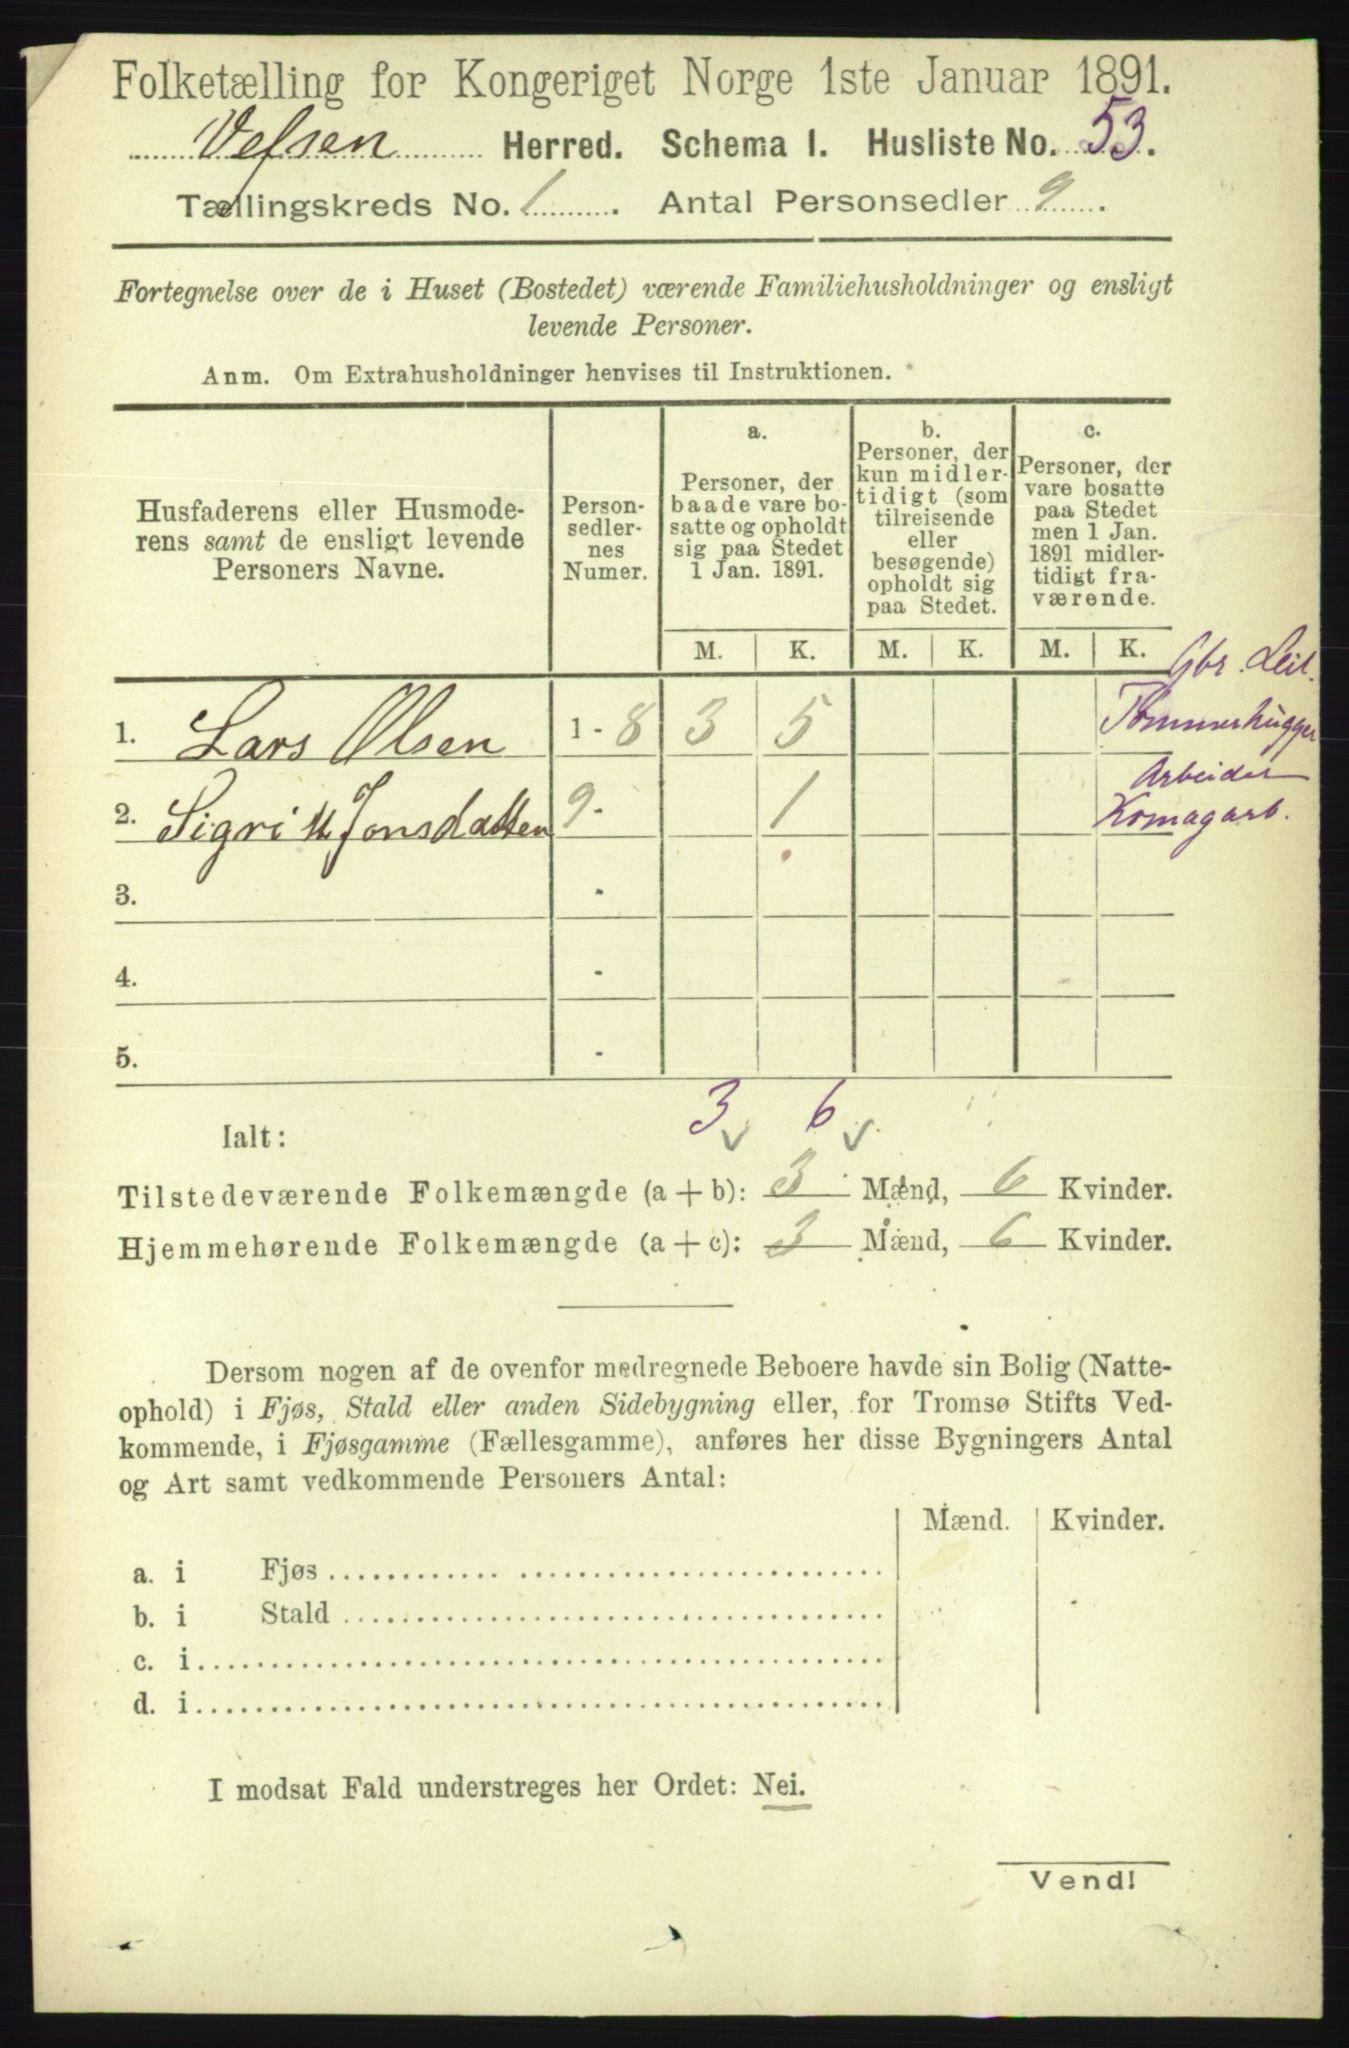 Folketælling for Kongeriget Norge 1ste Januar 1891.
Vefsen Herred. Schema I. Husliste No. 53.
Tællingskreds No. 1. Antal Personsedler 9.
Fortegnelse over de i Huset (Bostedet) værende Familiehusholdninger og ensligt
levende Personer.
Anm. Om Extrahusholdninger henvises til Instruktionen.
Husfaderens eller Husmode-
rens samt de ensligt levende
Personers Navne.
Person-
sedler-
nes
Numer.
a.
Personer, der
baade vare bo-
satte og opholdt
sig paa Stedet
1 Jan. 1891.
b.
Personer, der
kun midler-
tidigt (som
tilreisende
eller
besøgende)
opholdt sig
paa Stedet.
c.
Personer, der
vare bosatte
paa Stedet
men 1 Jan.
1891 midler-
tidigt fra-
værende.
M. K. M. K. M. K.
Gbr. Leil.
1. Lars Olsen 1 - 8 3 5 Tømmerhugger
Arbeider
2. Sigrit Jonsdatter 9 - 1 Komagarb.
3. -
4. -
5. -
3 6
Ialt:
Tilstedeværende Folkemængde (a + b): 3 Mænd, 6 Kvinder.
Hjemmehørende Folkemængde (a + c): 3 Mænd, 6 Kvinder.
Dersom nogen af de ovenfor medregnede Beboere havde sin Bolig (Natte-
ophold) i Fjøs, Stald eller anden Sidebygning eller, for Tromsø Stifts Ved-
kommende, i Fjøsgamme (Fællesgamme), anføres her disse Bygningers Antal
og Art samt vedkommende Personers Antal:
Mænd. Kvinder.
a. i Fjøs
b. i Stald
c. i
d. i
I modsat Fald understreges her Ordet: Nei.
Vend!